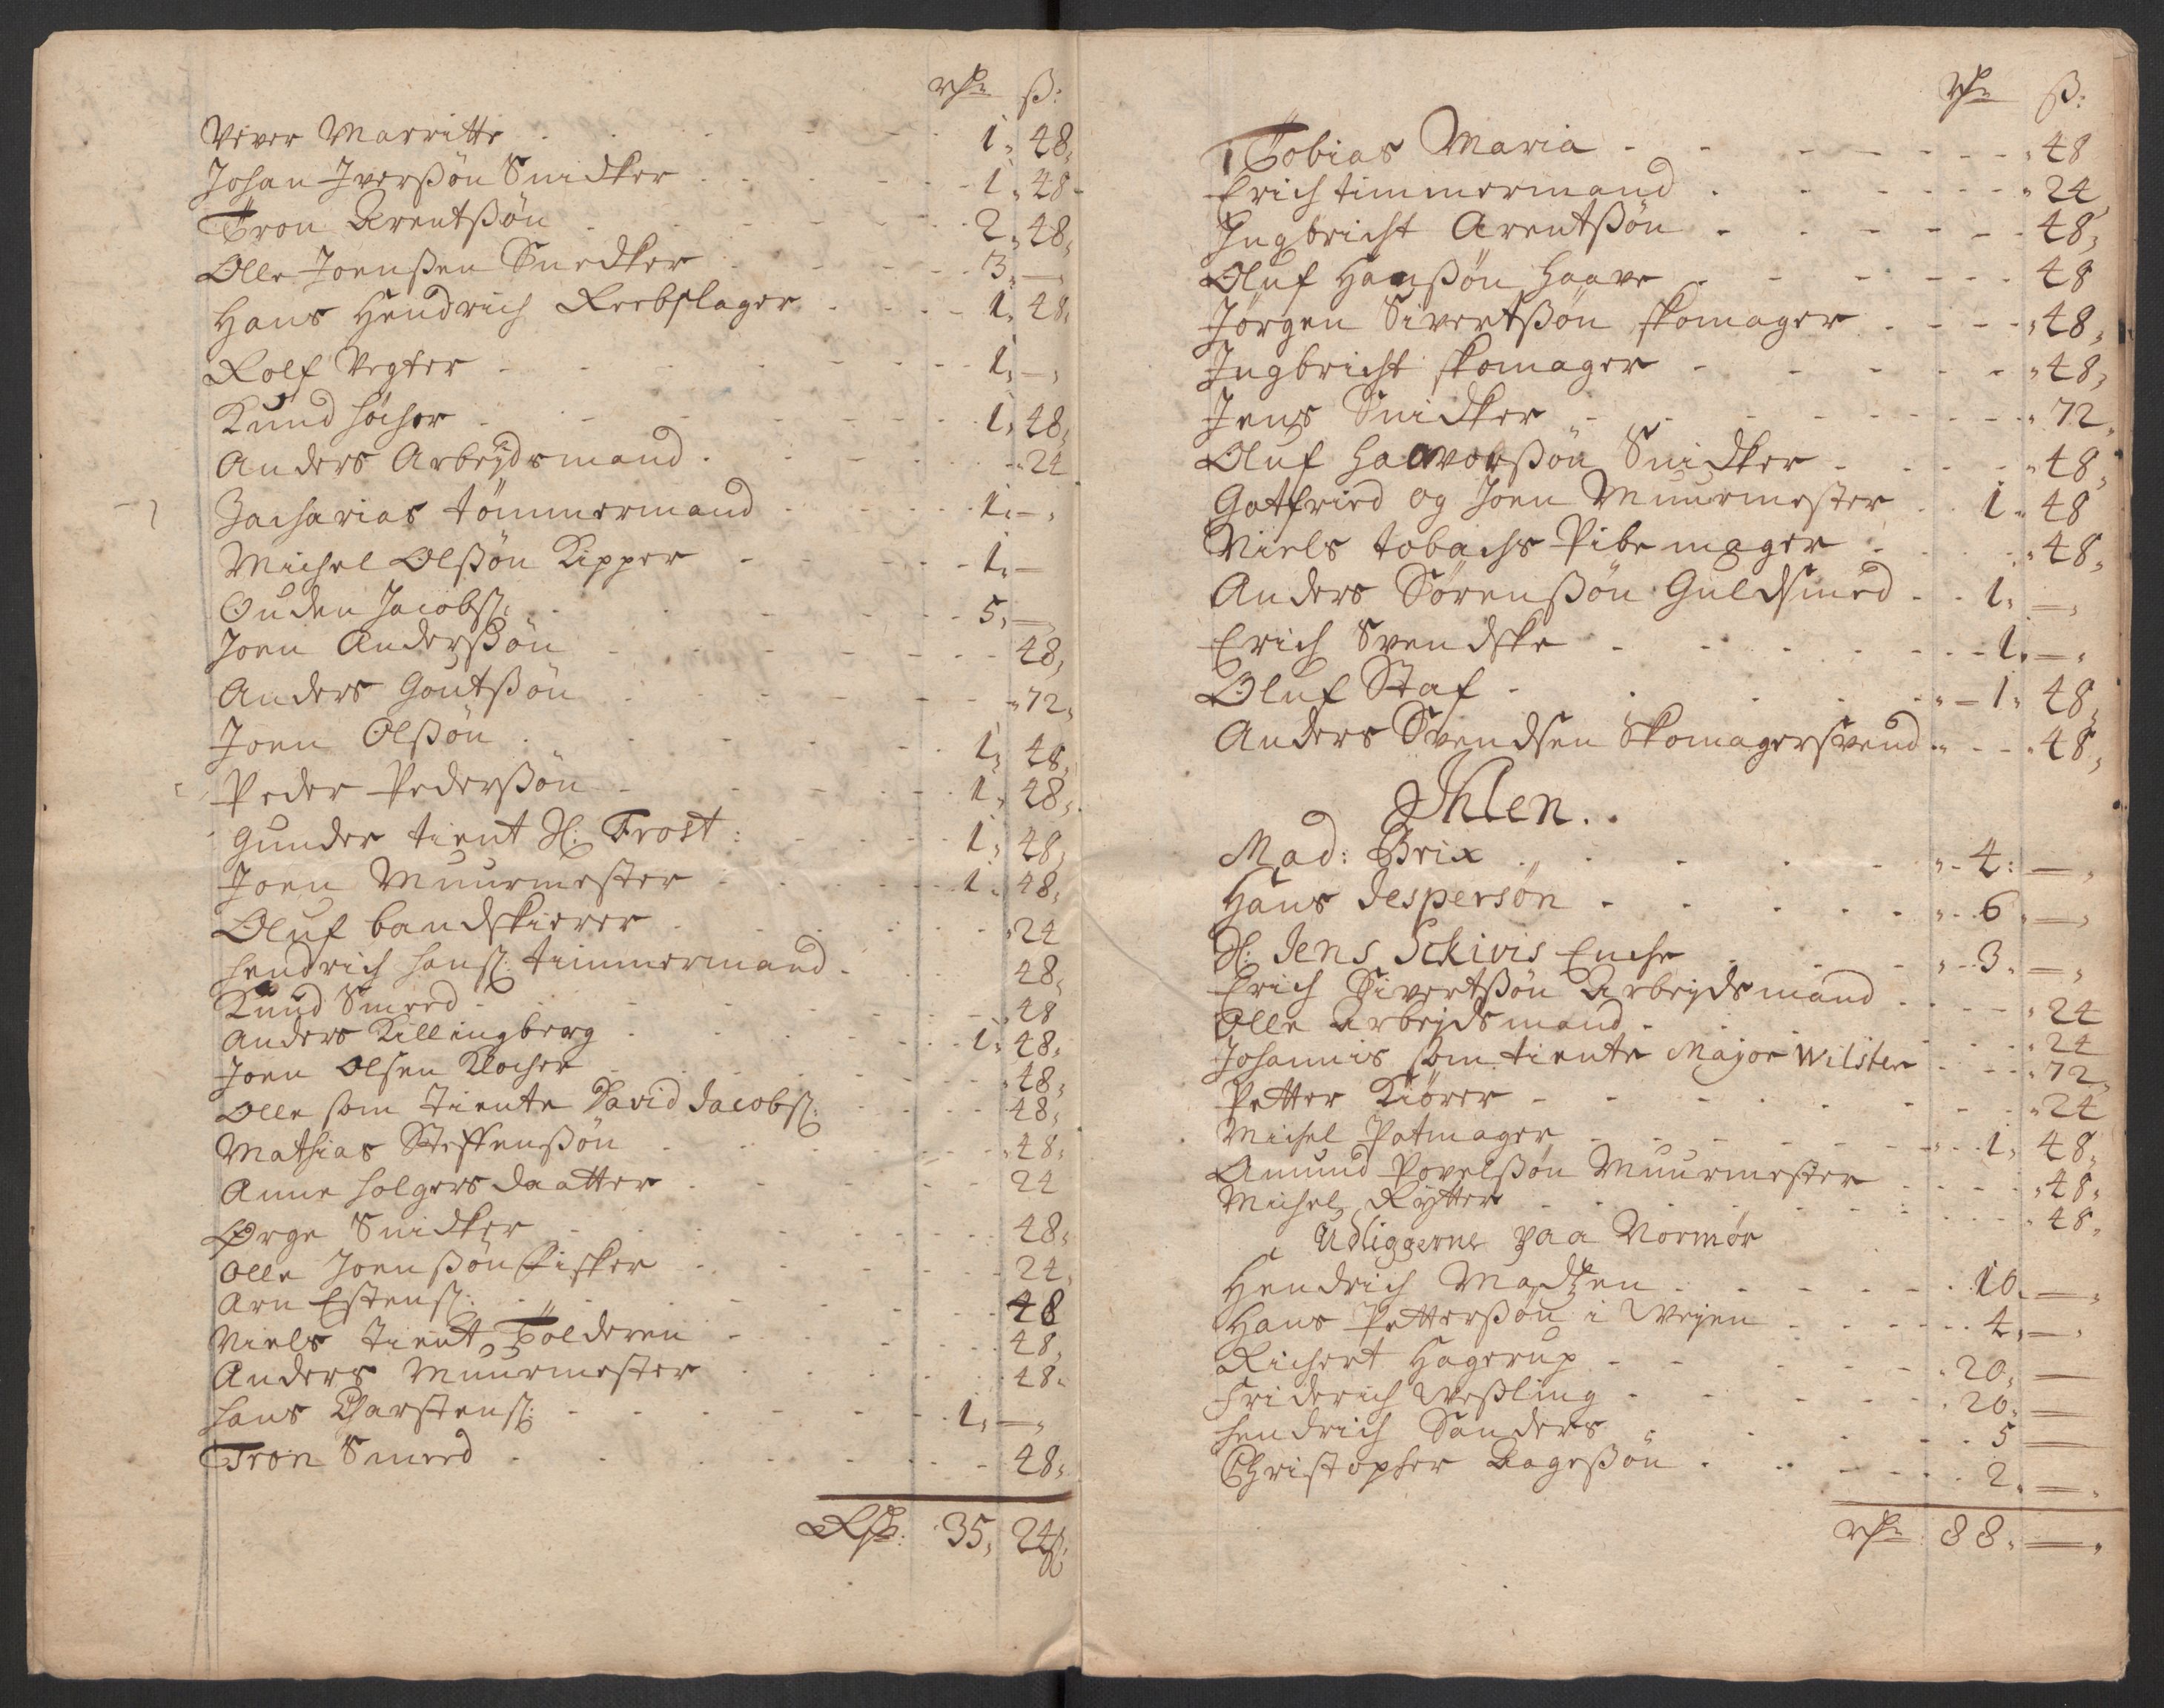 rdr ß:
Vever Marritte 1. 48.
Johan Iverßøn Snidker 1. 48
Tron Arentßøn 2. 48.
Olle Joenßen Snedker 3. —
Hans Hendrich Reebslager 1. 48.
Rolf Vegter 1. —
Knud høcher 1. 48.
Anders Arbeydsmand 24
Zacharias tømmermand 1. —
Michel Olßøn Kipper 1. —
Ouden Jacobs: 5. —
Joen Anderßøn 48.
Anders Goutßøn 72.
Joen Olßøn 1. 48.
Peder Pederßøn 1. 48.
Gunder tient H: Frost: 1. 48.
Joen Muurmester 1. 48.
Oluf bandskierer 24
Hendrich Hans: timmermand 48.
Knud Smed 48
Anders Killingberg 1. 48.
Joen Olsen Klocher 48.
Olle som tiente David Jacobs: 48.
Mathias Steffenßøn 48.
Anne Holgers daatter 24
Ørge Snidker 48.
Olle Joenßøn Fisker 24.
Arn Estens: 48
Niels tient Tolderen 48.
Anders Muurmester 48.
Hans Carstens: 1. —
Tron Smed 48.
Rdr: 35. 24ß:
rdr ß:
Tobias Maria 48
Erich timmermand 24
Ingbricht Arentßøn 48.
Oluf Hanßøn Haave 48
Jørgen Sivertßøn skomager 48.
Ingbricht skomager 48.
Jens Snidker 72.
Oluf Haavorßøn Snidker 48.
Gotfried og Joen Muurmester 1. 48
Niels tobachs Pibemager 48.
Anders Sørenßøn Guldsmed 1. —
Erich Svendske 1. —
Oluf Staf 1. 48.
Anders Svendsen Skomagersvend 48.
Ihlen.
Mad: Brix 4: —
Hans Jespersøn 6. —
H: Jens Schivis Enche 3. —
Erich Sivertßøn Arbeydsmand 24
Olle Arbeydsmand 24
Johannis som tiente Major Wilster 72.
Petter Kiører 24
Michel Potmager 1. 48.
Amund Povelßøn Muurmester 48.
Michel Rytter 48.
Udliggerne paa Normør
Hendrich Madtzen 10. —
Hans Petterßøn i Weyen 4. —
Richert Hagerup 20. —
Friderich Weßling 20. —
Hendrich Sanders 5 —
Christopher Aageßøn 2. —
rdr 88. —